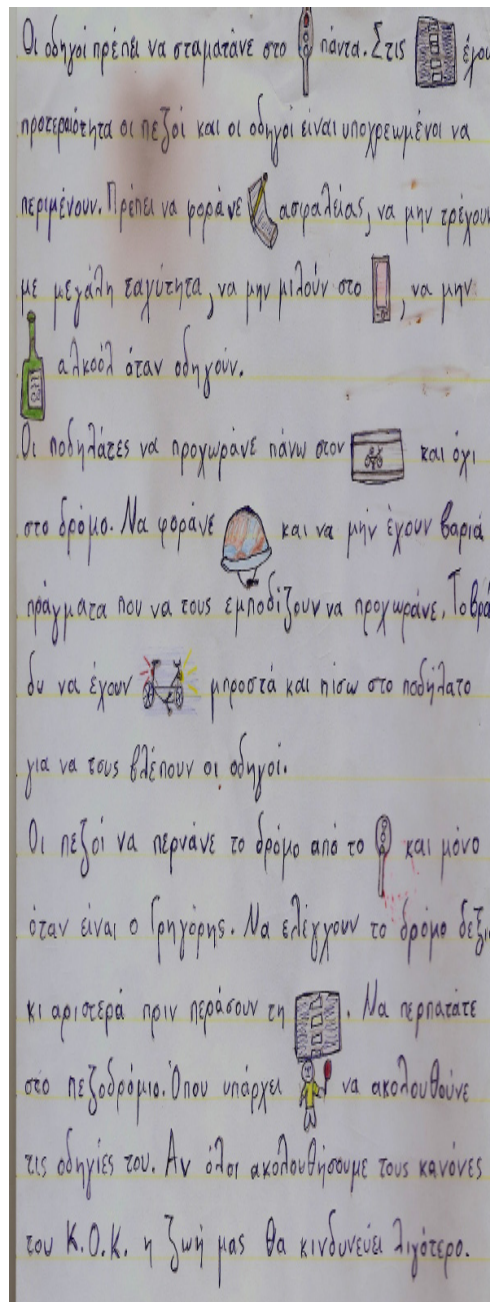 Οι οδηγοί πρέπει να σταματάνε στο πάντα. Στις έχου
προτεραιότητα οι πεζοί και οι οδηγοί είναι υποχρεωμένοι να
περιμένουν. Πρέπει να φοράνε ασφαλείας, να μην τρέχουν
με μεγάλη ταχύτητα, να μην μιλούν στο , να μην
αλκοόλ όταν οδηγούν.
Οι ποδηλάτες να προχωράνε πάνω στον και όχι
στο δρόμο. Να φοράνε και να μήν έχουν βαριά
πράγματα που να τους εμποδίζουν να προχωράνε. Το βρά
δυ να έχουν μπροστά και πίσω στο ποδήλατο
για να τους βλέπουν οι οδηγοί.
Οι πεζοί να περνάνε το δρόμο από το και μόνο
όταν είναι ο Γρηγόρης. Να ελέγχουν το δρόμο δεξι
κι αριστερά πριν περάσουν τη . Να περπατάτε
στο πεζοδρόμιο. Όπου υπάρχει να ακολουθούνε
τις οδηγίες του. Αν όλοι ακολουθήσουμε τους κανόνες
του Κ.Ο.Κ. η ζωή μας θα κινδυνεύει λιγότερο.